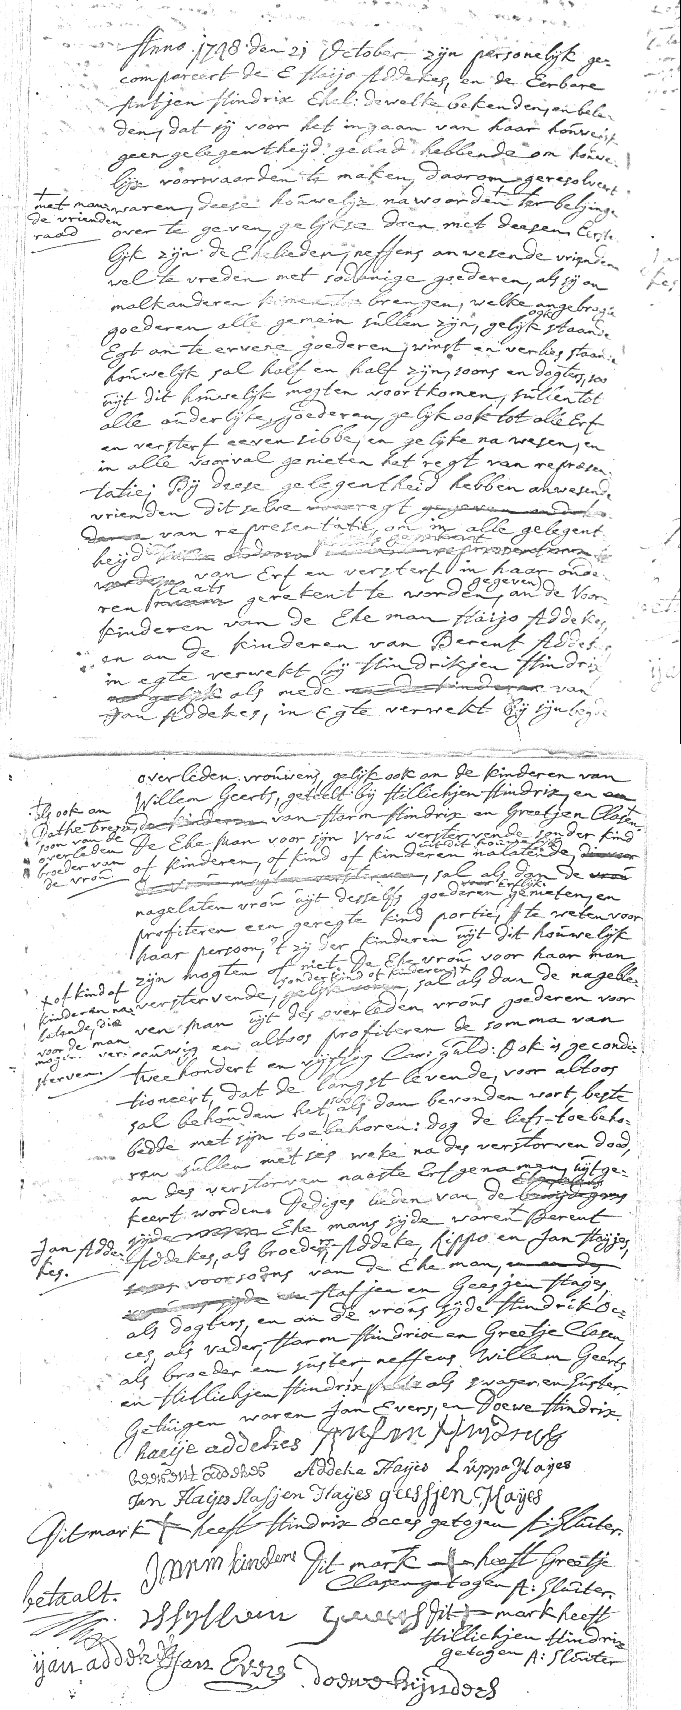 Anno 1748 den 21 October zijn personelijk ge-
compareert de E Haijo Addekes, en de Eerbare
Antjen Hindrix Ehel: dewelke bekenden, en belei
den, dat sij voor het ingaan van haar houwelijk
geen gelegentheijd gehad hebbende om houwe-
lijx voorwaarden te maken, daarom geresolveert
waren, deese houwelijx nawoorden ter
+ met man
de vrienden
raad
over te geven, gelijkse doen met deesen. Eerste-
lijk zijn de Ehelieden, neffens anwesende vrienden
wel te vreden met sodanige goederen, als sij an
malkanderen brengen, welke angebragte
goederen alle gemein sullen zijn, gelijk ook staande
Egt an te ervene goederen, winst en verlies staande
houwelijk sal half en half zijn, soons en dogters, soo
uijt dit houwelijk mogten voortkomen, sullen tot
alle ouderlijke goederen, gelijk ook tot alle Erf
en versterf eeven sibbe, en gelijke na wesen, en
in alle voorval genieten het regt van represen-
tatie; Bij deese gelegentheid hebben anwesende
vrienden ditselve regt
van representatie, om in alle gelegent-
heijd
van Erf en versterf in haar oude-
ren plaats gerekent te worden, gegeven an de Voor
kinderen van de Eheman Haijo Addekes,
en an de kinderen van Berent Addekes
in egte verwekt bij Hindrikjen Hindrix
als mede van
Jan Addekes, in Egte verwekt bij sijn beijde
overleden vrouwens, gelijk ook an de kinderen van
Willem Geerts, geteelt bij Hillichjen Hindrix, en
van Harm Hindrix en Greetjen Clasen.
+ als ook an
soon van de
overleden
broeder van
de vrou.
De Eheman voor sijn vrou verstervende sonder kind
of kinderen, of kind of kinderen uit dit houwelijk nalatende,
sal als dan de
nagelaten vrou uijt desselfs goederen genieten, en
profiteren een geregte kind portie, te weten voor
haar persoon, 't zij der kinderen uijt dit houwelijk
zijn mogten of niet. De Ehe vrou voor haar man
verstervende, sonder kind of kinderen, + sal als dan de nagele-
+ of kind of
kinderen na
latende, die
voor de man
mogen ver-
sterven.
ven man uijt des overleden vrous goederen voor
eeuwig en altoos profiteren de somma van
tweehondert en vijftig Car: guld: Ook is gecondi-
tioneert, dat de langst levende, voor altoos
sal behouden het, als dan bevonden wort, beste
bedde met sijn toebehoren: dog de liefs-toebeho-
ren sullen met ses weke na des verstorven dood,
an des verstorven naeste Erfgenamen, uijtge-
keert worden. Dedigeslieden van de
Ehe mans sijde waren Berent
Jan Adde-
kes.
Addekes, als broeders, Addeke, Lippo en Jan Haijes,
voorsoons van de Eheman,
Stafjen en Geesjen Hayes,
als dogters, en an de vrous sijde Hindrik Oc-
ces, als vader, Harm Hindrix en Greetje Clasen,
als broeder en suster, neffens Willem Geerts
en Hillichjen Hindrix als swager en suster.
Getuigen waren Jan Evers, en Doewe Hindrix.
haeije addekes Antien Hindricks
beerent addekes Addeke Hayes Luppo Hayes
Jan Hayes Stafjen Hayes geessjen Hayes
Dit mark + heeft Hindrix Occes getogen A: Sluiter.
Harm hinders Dit mark + heeft Greetje
Clasen getogen A: Sluiter.
betaalt.
Willem Geerts Dit + mark heeft
Hillichjen Hindrix
getogen A: Sluiter
ijan addekes Jan Evers doewe hijnders